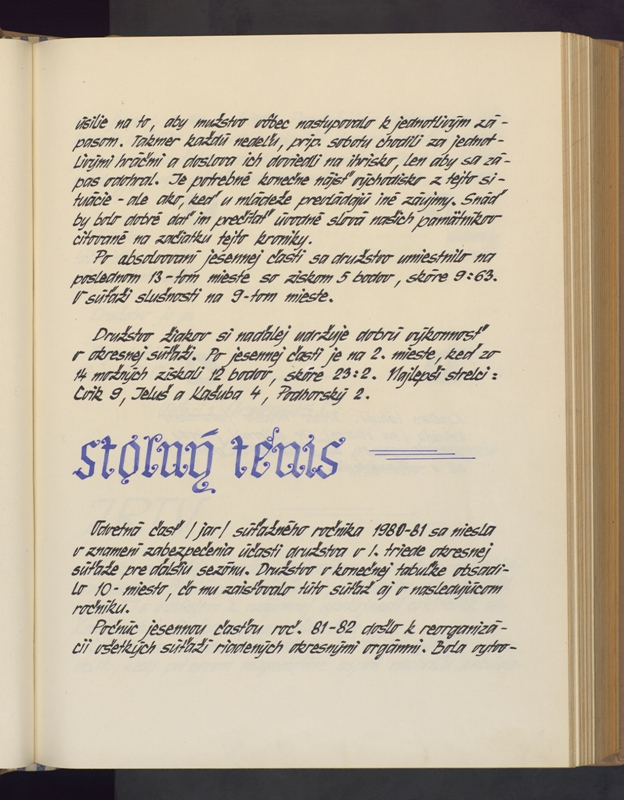 úsilie na to, aby mužstvo vôbec nastupovalo k jednotlivým zá-
pasom. Takmer každú nedeľu, príp. sobotu chodili za jednot-
livými hráčmi a doslova ich doviedli na ihrisko, len aby sa zá-
pas odohral. Je potrebné konečne nájsť východisko z tejto si-
tuácie - ale ako, keď u mládeže prevládajú iné záujmy. Snáď
by bolo dobré dať im prečítať úvodné slová našich pamätníkov
citované na začiatku tejto kroniky.
Po absolvovaní jesennej časti sa družstvo umiestnilo na
poslednom 13-tom mieste so ziskom 5 bodov, skóre 9:63.
V súťaži slušnosti na 9-tom mieste.
Družstvo žiakov si naďalej udržuje dobrú výkonnosť
v okresnej súťaži. Po jesennej časti je na 2. mieste, keď zo
14 možných získali 12 bodov, skóre 23:2. Najlepší strelci:
Cvik 9, Jeluš a Kašuba 4, Podhorský 2.
stolný tenis
Odvetná časť /jar/ súťažného ročníka 1980-81 sa niesla
v znamení zabezpečenia účasti družstva v I. triede okresnej
súťaže pre ďalšiu sezónu. Družstvo v konečnej tabuľke obsadi-
lo 10-miesto, čo mu zaisťovalo túto súťaž aj v nasledujúcom
ročníku.
Počnúc jesennou časťou roč. 81-82 došlo k reorganizá-
cii všetkých súťaží riadených okresnými orgánmi. Bola vytvo-